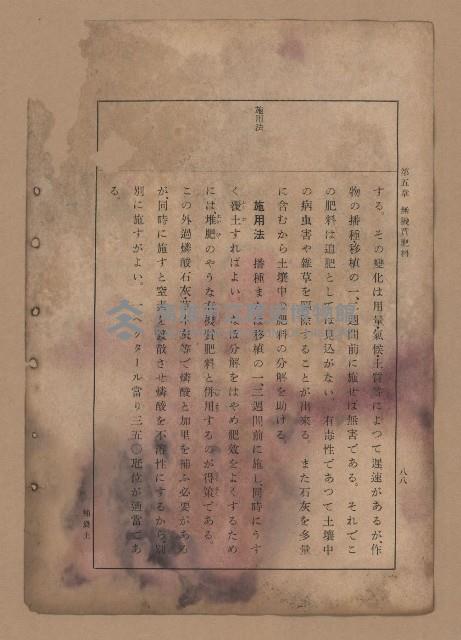 第五章 無機質肥料
八八
施用法
する。その變化は用量氣候土質等によつて遲速があるが、作
物の播種移植の一、二週間前に施せば無害である。それでこ
の肥料は追肥としては見込がない。有毒性であつて土壤中
の病虫害や雜草を驅除することが出來る。また石灰を多量
に含むから土壤中の肥料の分解を助ける。
施用法 播種または移植の一、三週間前に施し、同時にうす
く覆土すればよい。 は分解をはやめ肥效をよくするため
には堆肥のやうな有機質肥料と併用するのが得策である。
この外過燐酸石灰、草木灰等で燐酸と加里を補ふ必要がある
が同時に施すと窒素を 散させ燐酸を不溶性にするから、別
別に施すがよい。一ヘクタール當り三五〇瓩位が適當であ
る。
高雄市立歷史博物館